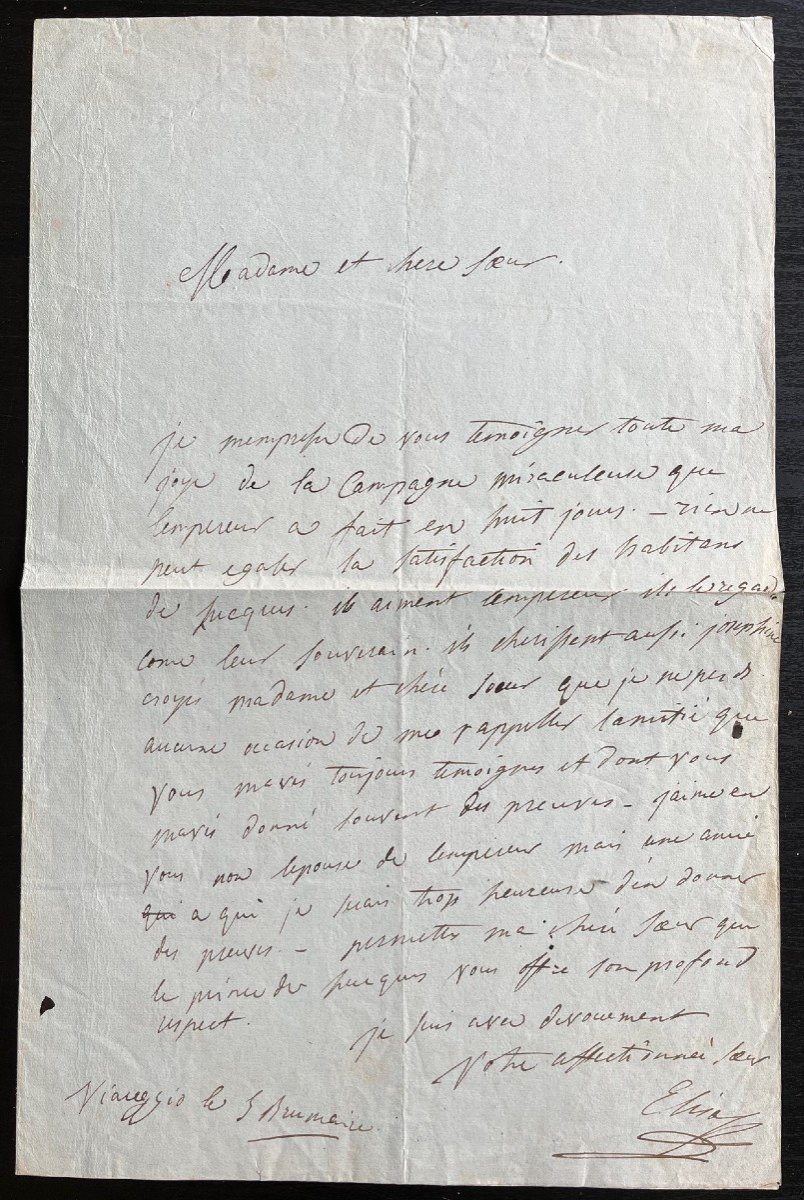 Madame et chere sœur.
je mempresse de vous temoigner toute ma
joye de la Campagne miraculeuse que
lempereur a fait en huit jours. – rien ne
peut egaler la satisfaction des habitans
de Lucques. ils aiment lempereur ils le regarde
come leur souverain. ils cherissent aussi josephine
croyés madame et chére sœur que je ne perds
aucune occasion de me rappeller lamitié que
vous mavés toujours temoignes et dont vous
mavés donné souvent des preuves – jaime en
vous non lepouse de lempereur mais une amie
qui a qui je serais trop heureuse den donner
des preuves. – permettes ma chére sœur que
le prince de Lucques vous offre son profond
respect.
je suis avec devouement
Votre affectionnée sœur
Elisa
Viareggio le 5 Brumaire